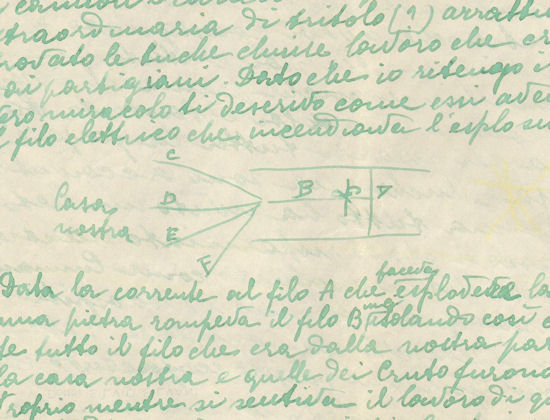 straordinaria di tritolo (1)
trovato le buche chiuse lavoro che
ai partigiani. Dato che io ritengo
miracolo ti descrivo come essi
il filo elettrico che incendiava l'esplosi
C
B
casa D
nostra E
F
faceva
Data la corrente al filo A che esplodere la
una pietra rompeva il filo B isolando così
tutto il filo che era dalla nostra par
la casa nostra e quelle dei Cruto furono
proprio mentre si sentiva il lavoro di